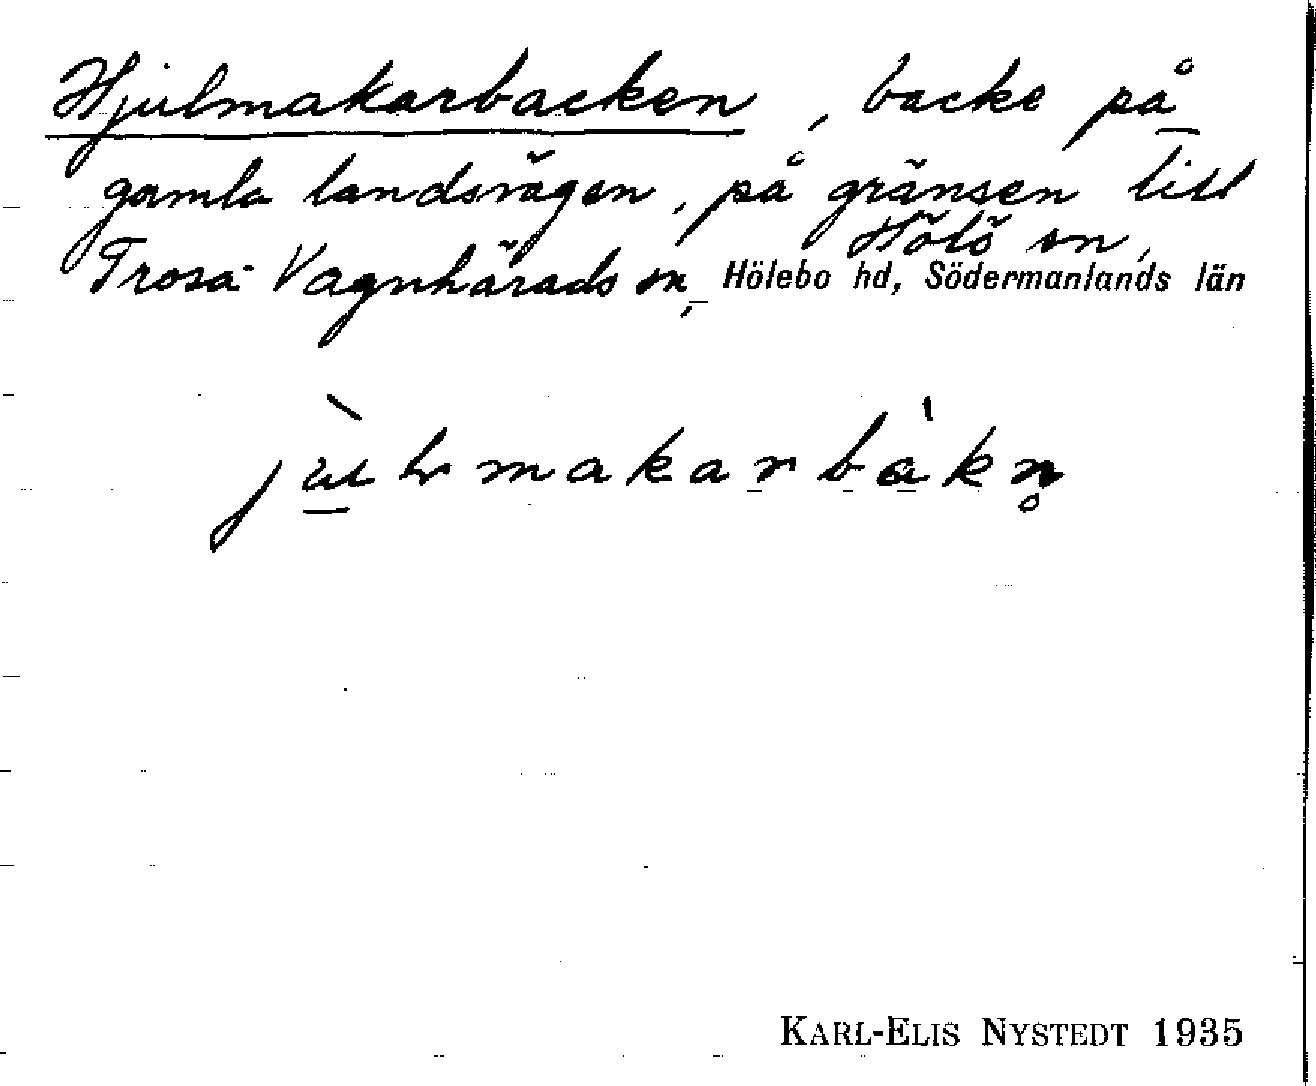 Hjulmakarbacken, backe på
gamla landsvägen, på gränsen till
Hölö sn,
Trosa-Vagnhärads sn, Hölebo hd, Södermanlands län
jùlmakarbàkn̥
KARL-ELIS NYSTEDT 1935